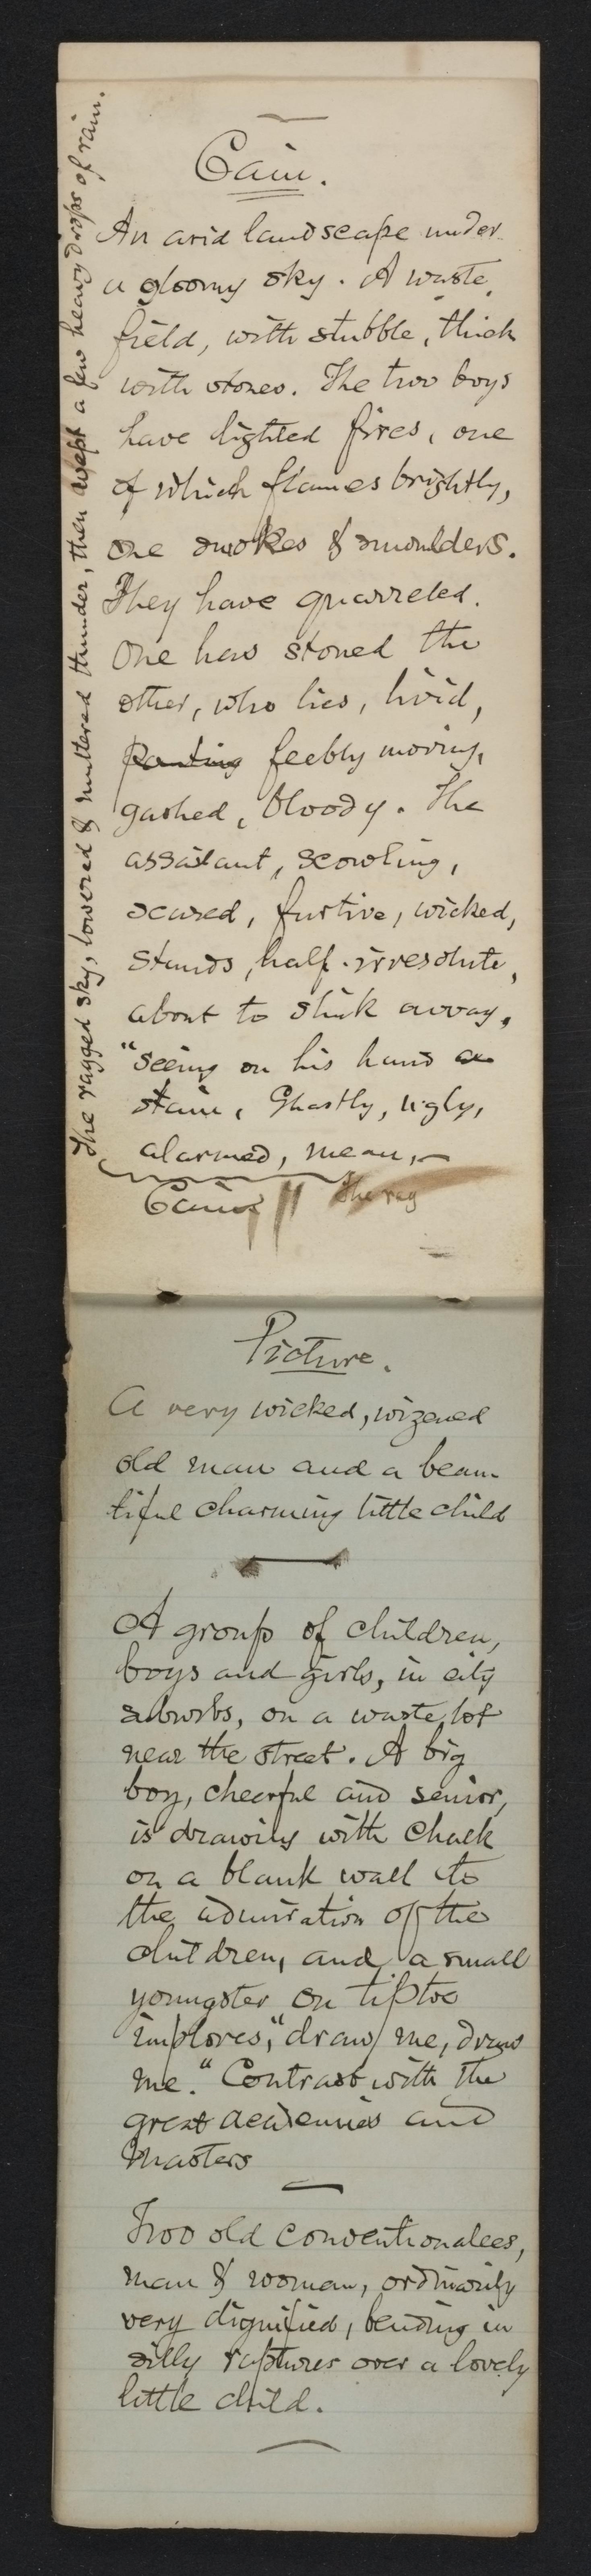 Cain.
An arid landscape under
a gloomy sky. A waste
field, with stubble, thick
with stones. The two boys
have lighted fires, one
of which flames brightly,
one smokes & smoulders.
They have quarreled.
One has stoned the
other, who lies, livid,
panting feebly moving,
gashed, bloody. The
assailant, scowling,
scared, furtive, wicked,
stands, half-irresolute,
about to slink away,
"seeing on his hand a
stain, Ghastly, ugly,
alarmed, mean,—
Cain The rag
The ragged sky, lowered & muttered thunder, then wept a few heavy drops of rain.
Picture.
A very wicked, wizened
old man and a beau-
tiful charming little child
A group of children,
boys and girls, in city
suburbs, on a waste lot
near the street. A big
boy, cheerful and senior,
is drawing with chalk
on a blank wall to
the admiration of the
children, and a small
youngster on tiptoe
implores, "draw me, draw
me." Contrast with the
great academies and
masters
Two old conventionalees,
man & woman, ordinarily
very dignified, bending in
silly raptures over a lovely
little child.